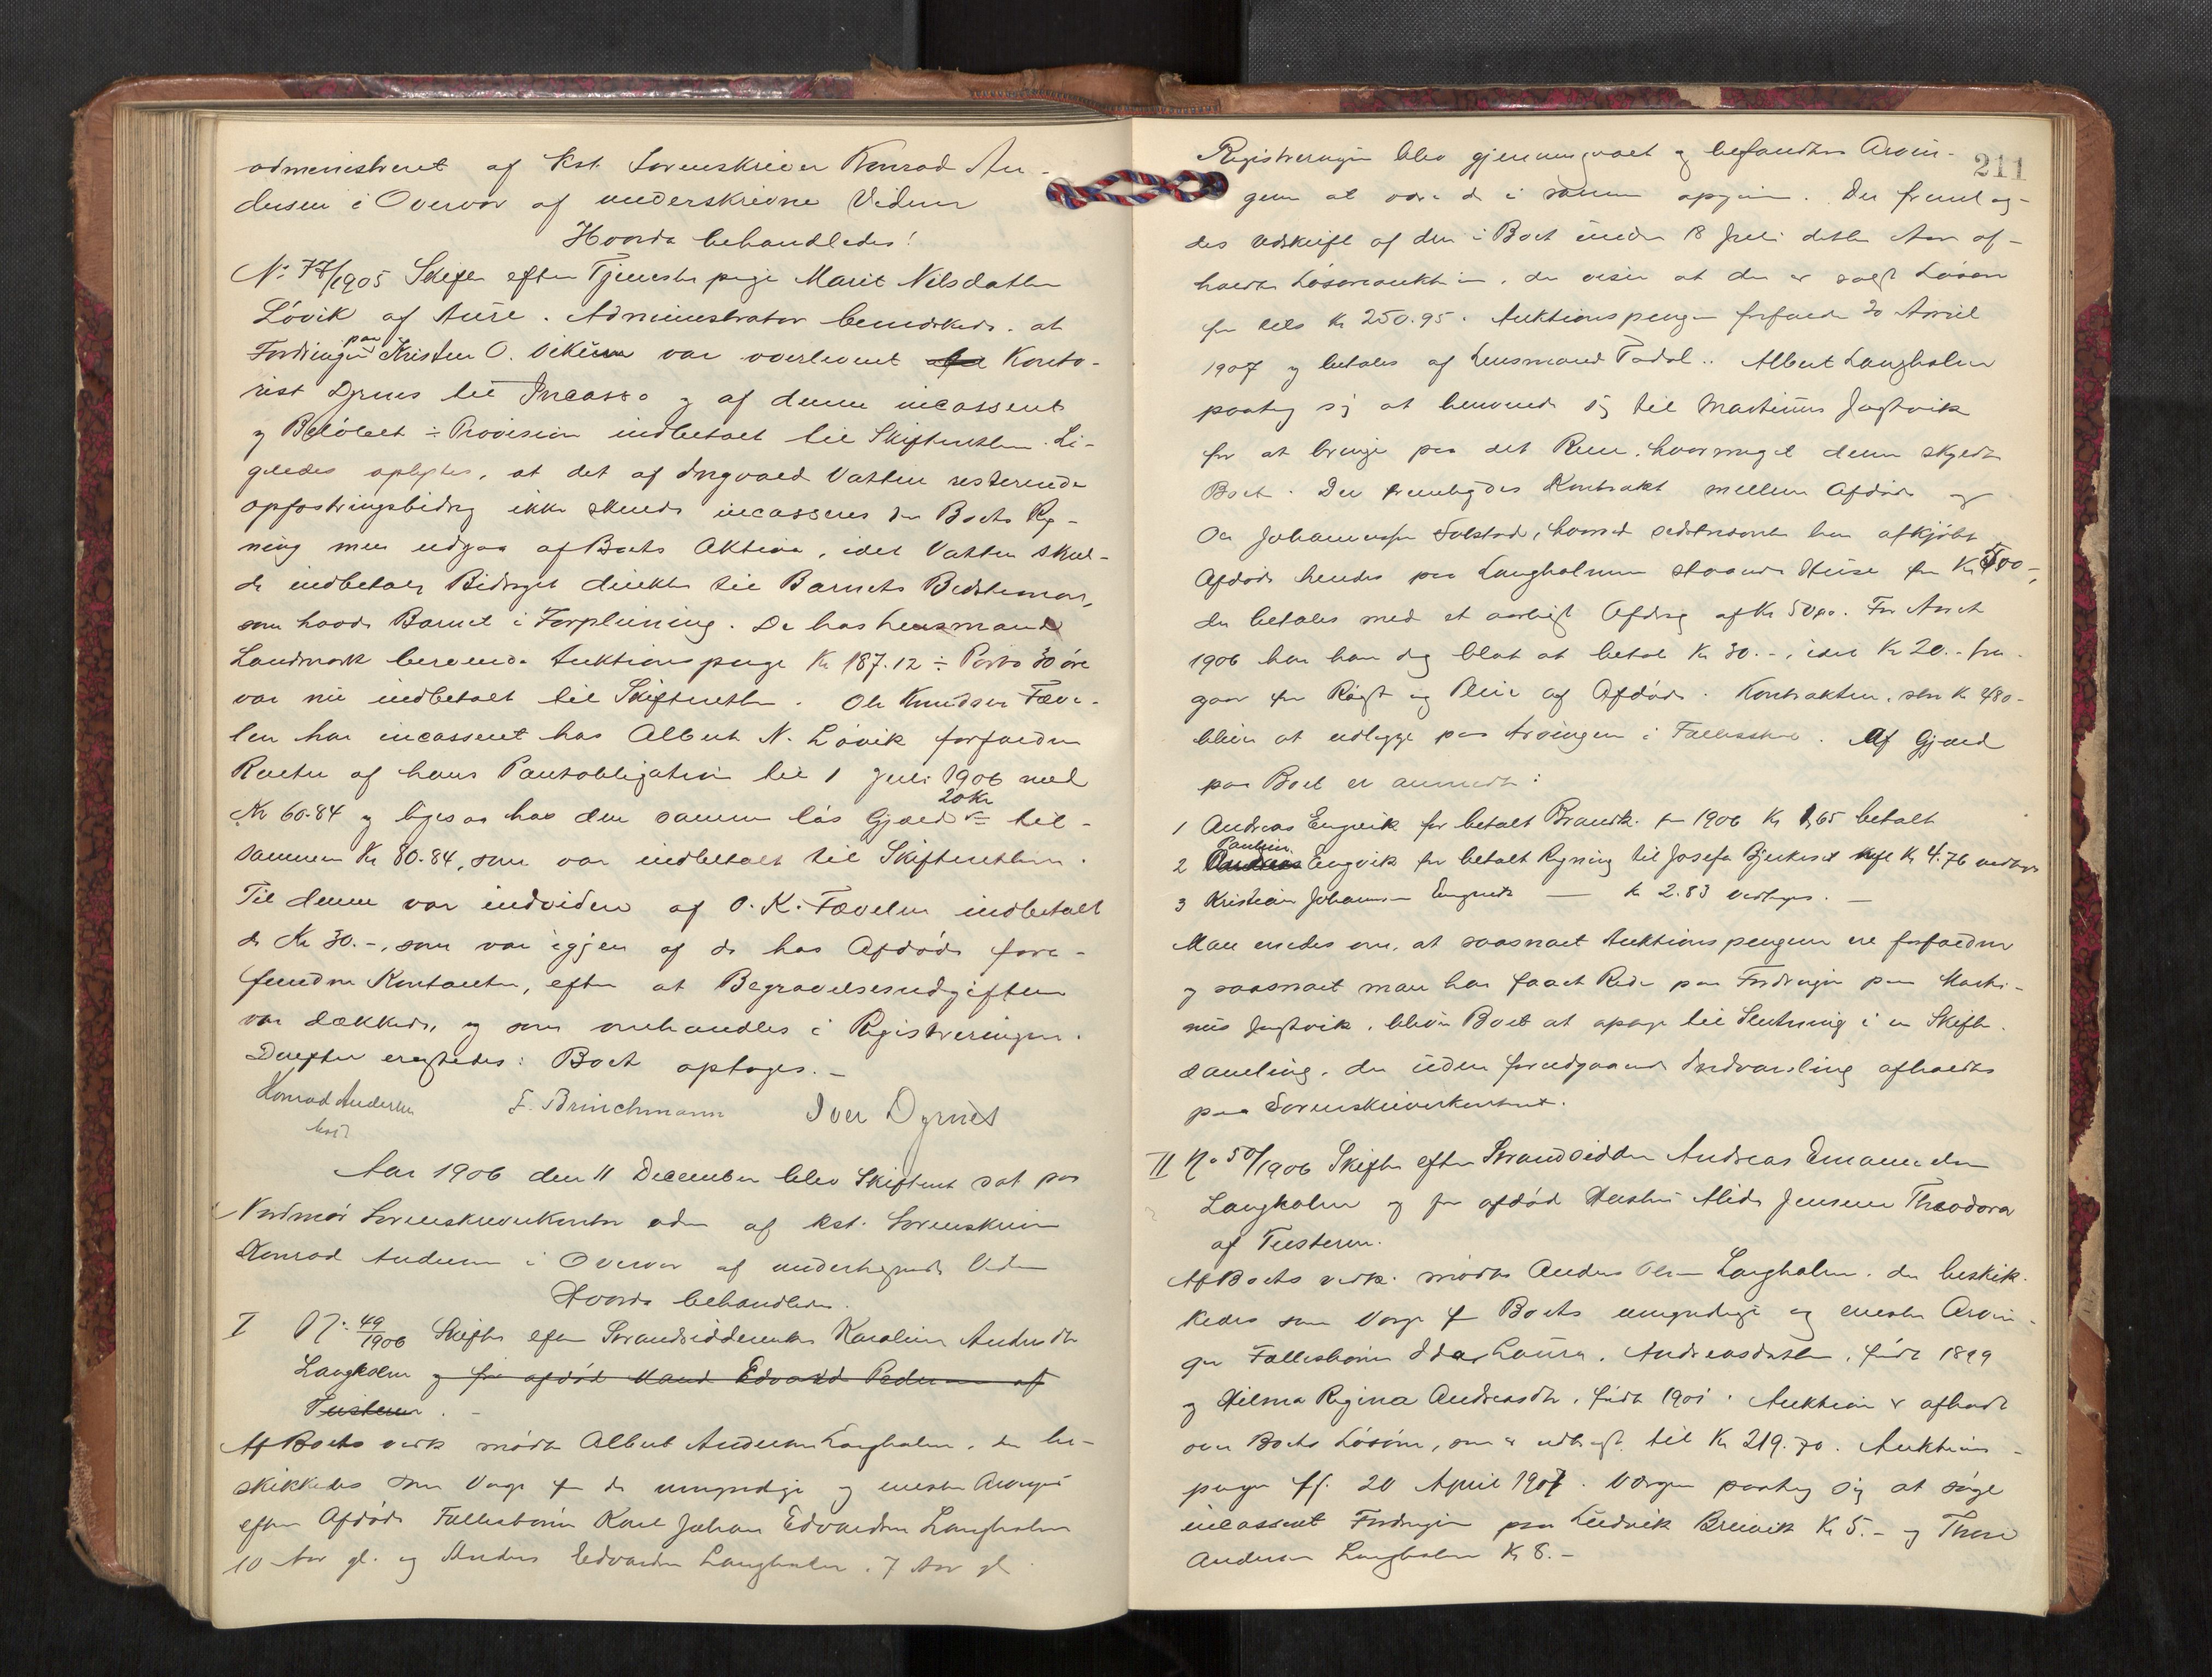 administreret af Kst. Sorenskriver Konrad An-
dersen i Overvær af underskrevne Vidner
Hvorda behandledes:
No 77/1905 Skifte efter Tjenestepige Marit Nilsdatter
Løvik af Aure. Administrator bemærkede, at
Fordringen paa Kristen O. var overleveret Konto-
rist Dyrnes til Incasso og af denne incasseret
og Beløbet ÷ Provision indbetalt til Skifteretten. Li-
geledes oplystes, at det af Ingvald Vatten resterende
opfostringsbidrag ikke skulde incasseres for Boets Reg-
ning men udgaa af Boets Aktiva, idet Vatten skul-
de indbetale Bidraget direkte til Barnets Bedstemor,
som havde Barnet i Forpleining. De hos Lensmand
Landmark beroende Auktionspenge Kr 187.12 ÷ Porto 30 øre
var nu indbetalt til Skifteretten. Ole Knudsen Fæve-
len har incasseret hos Albert N. Løvik forfaldne
Renter af hans Pantobligation til 1 Juli 1906 med
Kr 60.84 og ligesaa hos den samme løs Gjæld 20 Kr = til-
sammen Kr 80.84, som var indbetalt til Skifteretten.
Til denne var endvidere af O. K. Fævelen indbetalt
de Kr 30.-, som var igjen af de hos Afdøde fore-
fundne Kontanter, efter at Begravelsesudgifterne
var dækkede, og som omhandles i Registreringen.
Derefter eragtedes: Boet optages. -
Konrad Andersen
kst
F. Brinchmann
Iver Dyrnes
Aar 1906 den 11 December blev Skifteret sat paa
Nordmør Sorenskriverkontor adm af kst. Sorenskriver
Konrad Andersen i Overvær af undertegnede Vidner
Hvorda behandledes.
I No 49/1906 Skifte efter Strandsidderenke Karoline Andersdtr
Langholm og før afdød Mand Edvard Pedersen af
Tusteren. -
Af Boets vedk mødte Albert Andersen Langholm, der be-
skikkedes som Verge for de umyndige og eneste Arvinger
efter Afdøde Fællesbørn Karl Johan Edvardsen Langholm
10 Aar gl. og Anders Edvardsen Langholm, 7 Aar gl
211
Registreringen blev gjennemgaaet og befandtes Arvin-
gerne at være de i samme opgivne. Der fremlag-
des Udskrift af den i Boet under 18 Juli dette Aar af-
holdte Løsøreauktion, der viser at der er solgt Løsøre
for tils Kr 250.95. Auktionspengene forfalder 20 April
1907 og betales af Lensmand Todal.. Albert Langholm
paatog sig at henvende sig til Martinus Jøgtvik
for at bringe paa det Rene, hvormeget denne skyldte
Boet. Der fremlagdes Kontrakt mellem Afdøde og
Ole Johannesen Solstad, hvorved sidstnævnte har afkjøbt
Afdøde hendes paa Langholmen staaende Huse for Kr 500-,
der betales med et aarligt Afdrag af Kr 50,00. For Aaret
1906 har han dog blot at betale Kr 30.-, idet Kr 20.- fra-
gaar for Røgt og Pleie af Afdøde. Kontrakten, stor Kr 480-
bliver at udlægge paa Arvingerne i Fællesskab. Af Gjæld
paa Boet er anmeldt:
1 Andreas Engvik for betalt Brandk. for 1906 Kr 1,65 betalt
2 Pauline Engvik for betalt Regning til Josefa Bjerkeset Kr 4.76 vedtages
3 Kristian Johannesen Engvik — Kr 2.83 vedtages. -
Man enedes om, at saasnart Auktionspengene ere forfaldne
og saasnart man har faaet Rede paa Fordringen paa Marti-
nus Jøgtvik, bliver Boet at optage til Slutning i en Skifte-
samling, der uden forudgaaende Indvarsling afholdes
paa Sorenskriverkontoret.
II No 50/1906 Skifte efter Strandsidder Andreas Emanuelsen
Langholm og før afdød Hustru Alida Jensine Theodora
af Tusteren.
Af Boets vedk. mødte Anders Olsen Langholm, der beskik-
kedes som Verge for Boets umyndige og eneste Arvin-
ger Fællesbørn Ida Laura Andreasdatter, født 1899
og Hilma Regina Andreasdtr, født 1901. Auktion er afholdt
over Boets Løsøre, som er udbragt til Kr 219.70. Auktions-
penge ff. 20 April 1907. Vergen paatog sig at søge
incasseret Fordringer paa Ludvik Brevik Kr 5.- og Thore
Andersen Langholm Kr 8.-